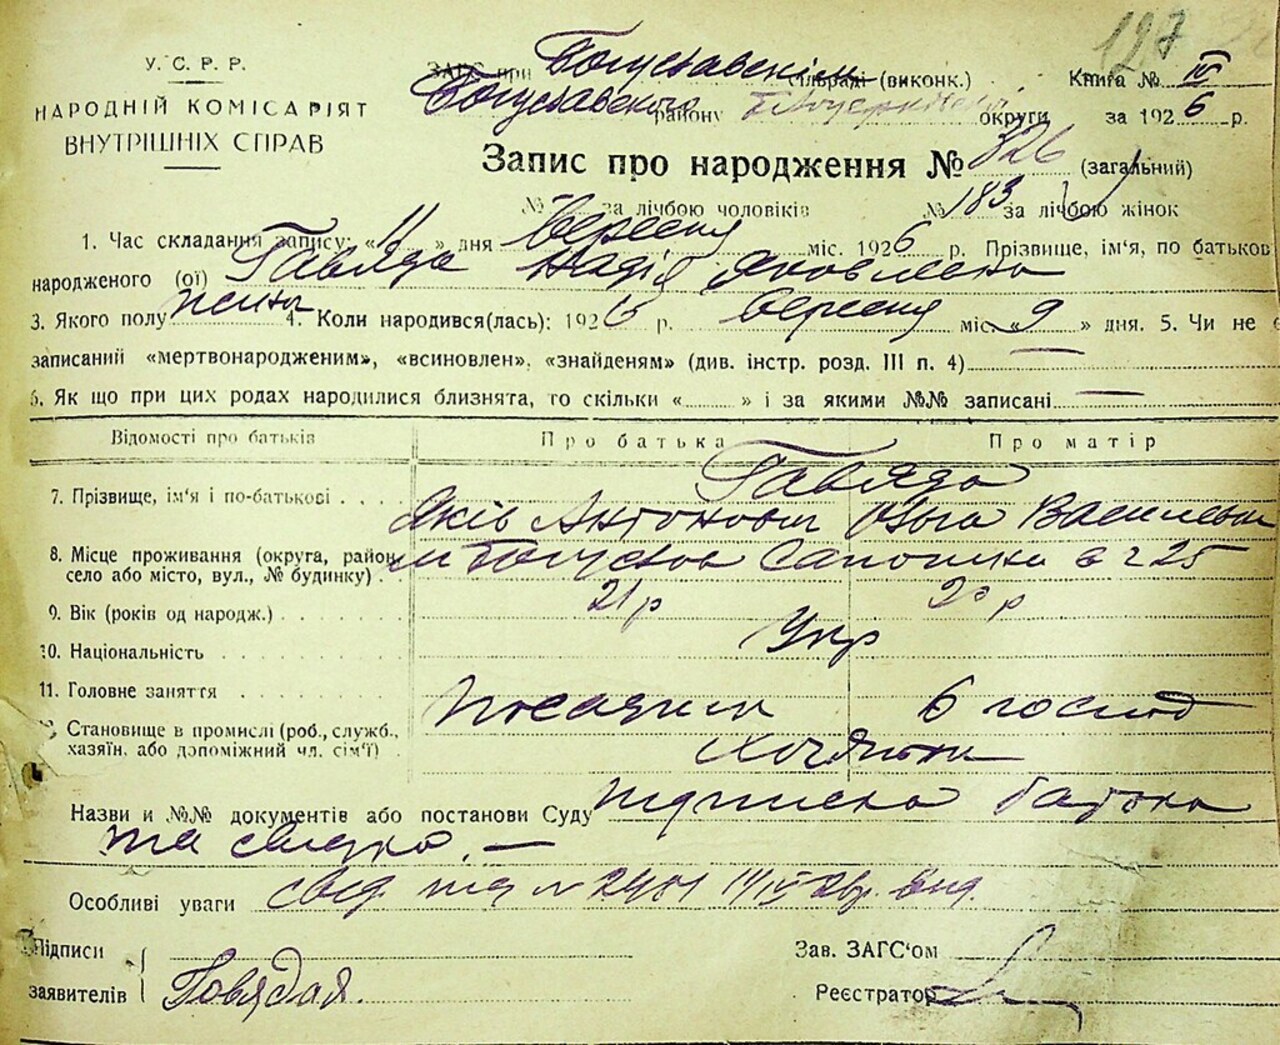 127
У. С. Р. Р.
НАРОДНІЙ КОМІСАРІЯТ
ВНУТРІШНІХ СПРАВ
ЗАГС при Богуславскім сільраді (виконк.) Книга № IV
Богуславского району Білоцерківської округи за 1926 р.
Запис про народження № 326 (загальний)
№ за лічбою чоловіків № 183 за лічбою жінок
1. Час складання запису: «11» дня Вересня міс. 1926 р. Прізвище, ім'я, по батьков
народженого (ої) Гавяда Надія Яковлевна
3. Якого полу жіноч 4. Коли народився(лась): 1926 р. вересня міс. «9» дня. 5. Чи не є
записаний «мертвонародженим», «всиновлен», «знайденям» (див. інстр. розд. III п. 4) —
6. Як що при цих родах народилися близнята, то скільки « » і за якими №№ записані —
Відомості про батьків Про батька Про матір
Гавяда
7. Прізвище, ім'я і по-батькові Яків Антонович Ольга Василевна
8. Місце проживання (округа, район м Богуслав ч 25
село або місто, вул., № будинку)
9. Вік (років од народж.) 21 р 20 р
10. Національність Укр
11. Головне заняття в господ
Становище в промислі (роб., служб.,
хазяїн. або допоміжний чл. сім'ї)
Назви и №№ документів або постанови Суду підписка батька
та свідка. —
Особливі уваги свід. під № 2401 14/IV 28р. вид.
Підписи Зав. ЗАГС'ом
заявителів Говядая Реєстратор